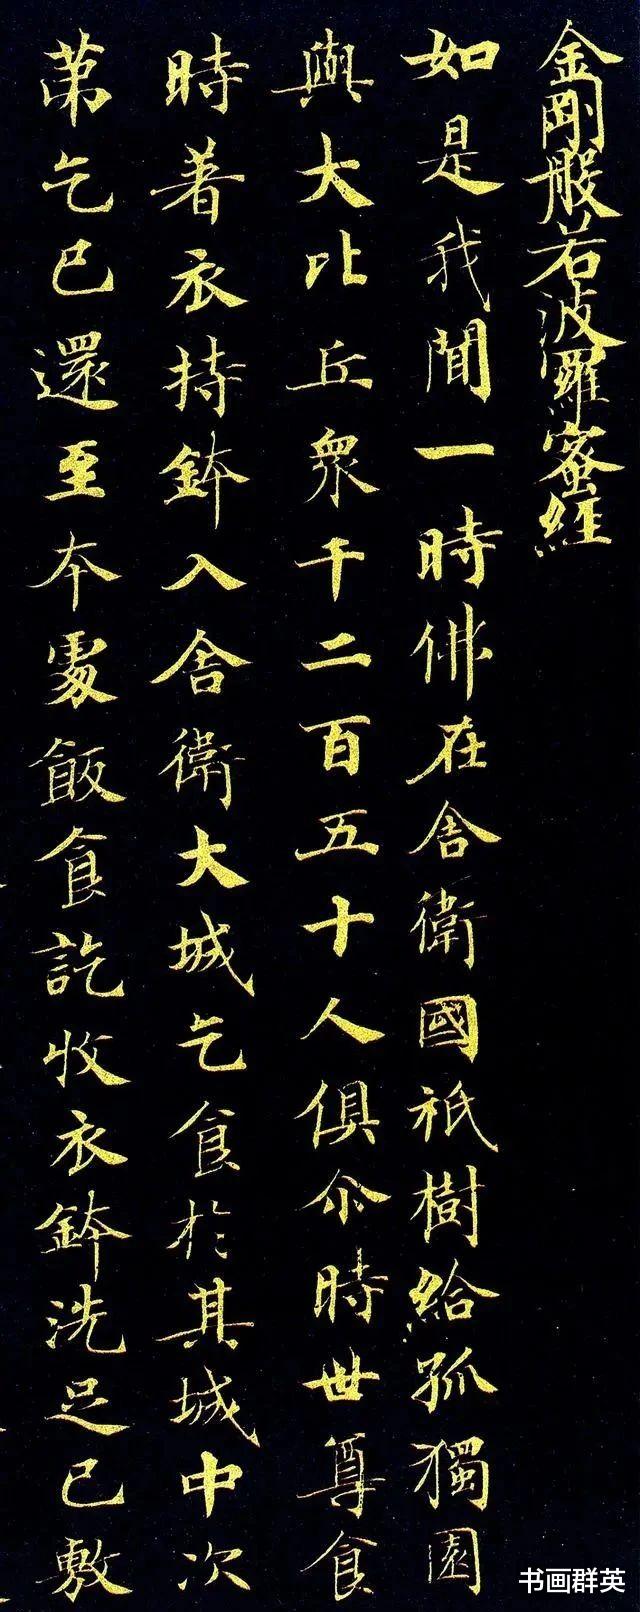 金剛般若波羅蜜經
如是我聞一時佛在舍衛國祇樹給孤獨園
與大比丘眾千二百五十人俱尒時世尊食
時著衣持鉢入舍衛大城乞食於其城中次
苐乞已還至本處飯食訖收衣鉢洗足已敷
书画群英